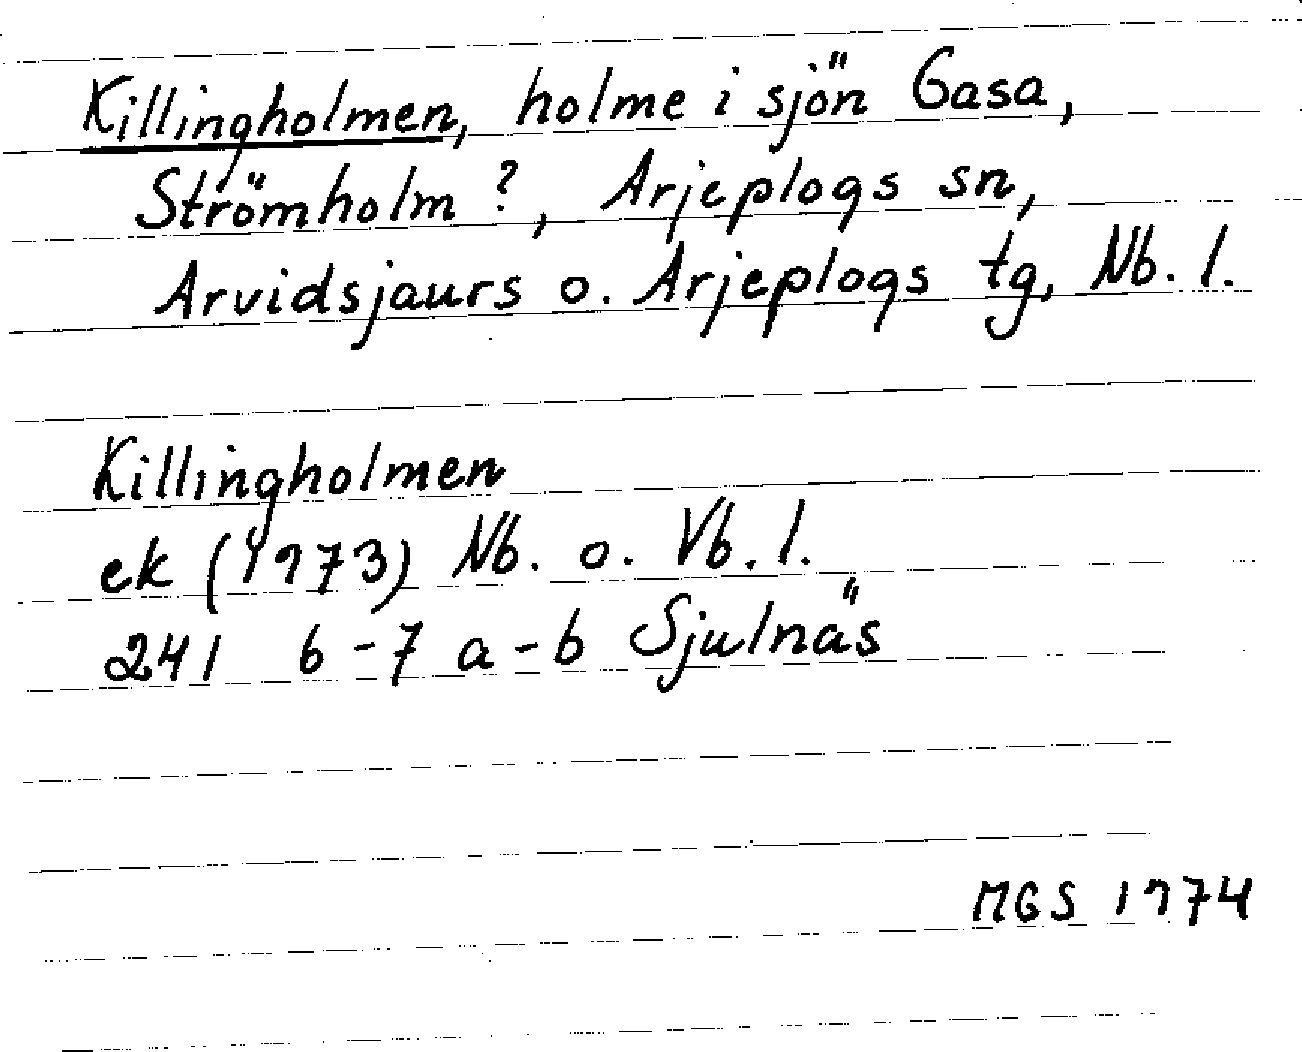 Killingholmen, holme i sjön Gasa,
Strömholm ?, Arjeplogs sn,
Arvidsjaurs o. Arjeplogs tg, Nb. l.
Killingholmen
ek (1973) Nb. o. Vb. l.
241 6-7 a-b Sjulnäs
MGS 1974